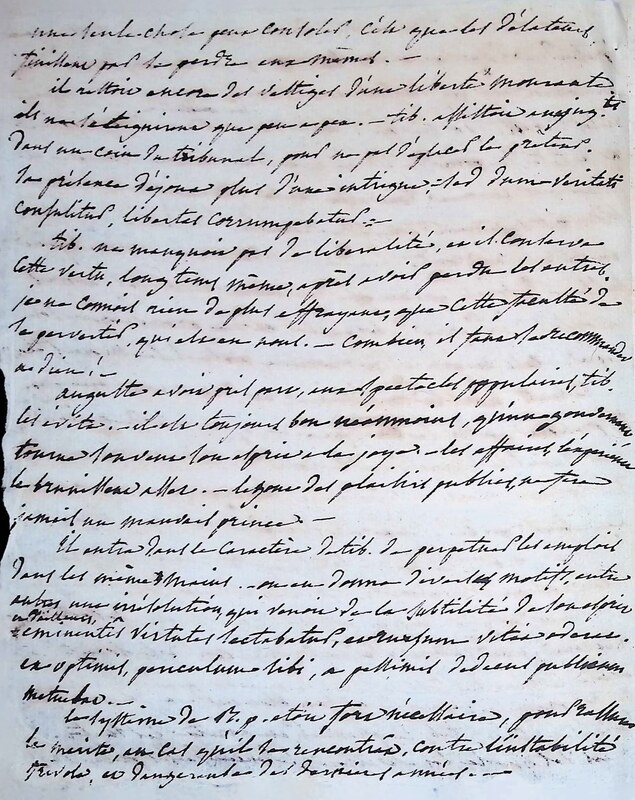 une seule chose peut consoler, c'est que les délateurs,
finissent par se perdre eux mêmes. —
il restoit encore des vestiges d'une liberté mourante
ils ne s'éteignirent que peu a peu. — tib. assistoit aux jug.ts
dans un coin du tribunal, pour ne pas déplacer le préteur.
sa présence déjoua plus d'une intrigue, = sed dum veritati
consulitur, libertas corrumpebatur =
tib. ne manquoit pas de libéralité, et il conserva
cette vertu, longtems même, après avoir perdu les autres.
je ne connois rien de plus effrayant, que cette faculté de
se pervertir, qui est en nous. — Combien, il faut se recommander
a dieu! —
auguste avoit pris part, aux spectacles populaires, tib.
les évita. — il est toujours bon néanmoins, qu'un gouvernement
tourne souvent son esprit a la joye. — les affaires, l'expérience
le brunissent assez. — le goût des plaisirs publics, ne fera
jamais un mauvais prince. —
Il entra dans le caractère de tib. de perpétuer les emplois
dans les mêmes mains. — on en donna divers motifs, entre
autres une irrésolution, qui venoit de la subtilité de son esprit
= et d'ailleurs, eminentes virtutes sectabatur, et rursum vitia oderat.
ex optimis, periculum sibi, a pessimis dedecus publicum
metuebat. —
le système de p. étoit fort nécessaire, pour
le mérite, au cas qu'il se rencontrât, contre l'instabilité
frivole, et dangereuse des dernières années. —